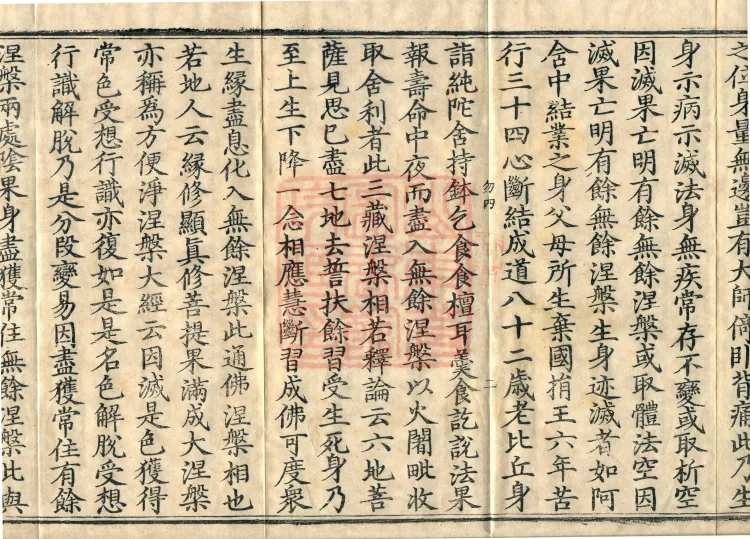 之住身量無邊豈有大師倚臥背痛此乃生
身示病示滅法身無疾常存不變或取析空
因滅果亡明有餘無餘涅槃或取體法空因
滅果亡明有餘無餘涅槃生身迹滅者如阿
含中結業之身父母所生棄國捐王六年苦
行三十四心斷結成道八十二歲老比丘身
詣純陀舍持鉢乞食食檀耳羹食訖說法果
報壽命中夜而盡入無餘涅槃以火闍毗收
取舍利者此三藏涅槃相若釋論云六地菩
薩見思巳盡七地去誓扶餘習受生死身乃
至上生下降一念相應慧斷習成佛可度衆
生緣盡息化入無餘涅槃此通佛涅槃相也
若地人云緣修顯真修菩提果滿成大涅槃
亦稱為方便淨涅槃大經云因滅是色獲得
常色受想行識亦復如是是名色解脫受想
行識解脫乃是分段變易因盡獲常住有餘
涅槃兩處陰果身盡獲常住無餘涅槃此與